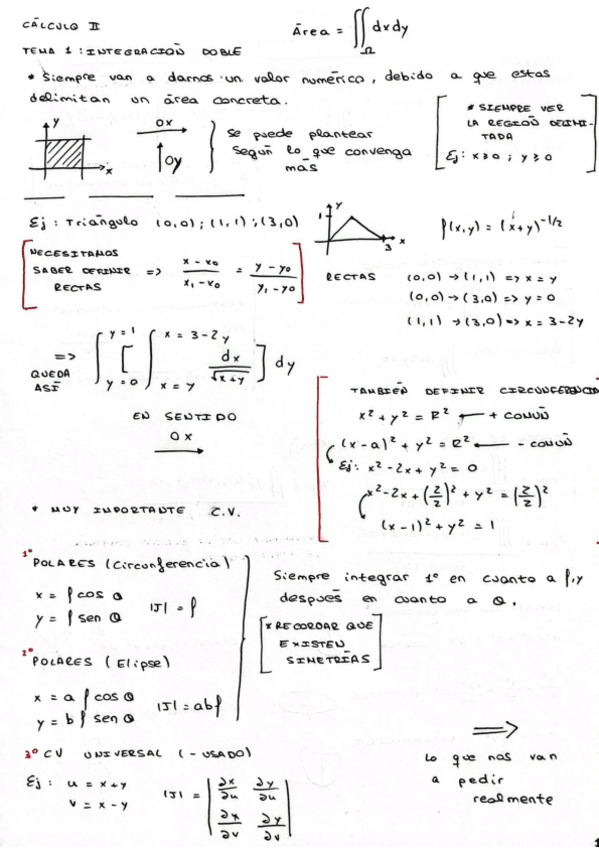 CÁLCULO II
Área = ∬_Ω dxdy
TEMA 1 : INTEGRACIÓN DOBLE
* Siempre van a darnos un valor numérico, debido a que estas
delimitan un área concreta.
y
x
OX
OY
Se puede plantear
según lo que convenga
más
* SIEMPRE VER
LA REGIÓN DELIMI-
TADA
Ej: x≥0 ; y≥0
Ej : Triángulo (0,0) ; (1,1) ; (3,0)
y
1
3
x
f(x,y) = (x+y)^{-1/2}
NECESITAMOS
SABER DEFINIR => (x - x0)/(x1 - x0) = (y - y0)/(y1 - y0)
RECTAS
RECTAS (0,0) → (1,1) => x = y
(0,0) → (3,0) => y = 0
(1,1) → (3,0) => x = 3-2y
=> ∫_{y=0}^{y=1} [ ∫_{x=y}^{x=3-2y} dx/√(x+y) ] dy
QUEDA
ASÍ
EN SENTIDO
OX
TAMBIÉN DEFINIR CIRCUNFERENCIA
x² + y² = R² ← + COMÚN
(x-a)² + y² = R² ← - COMÚN
Ej: x² - 2x + y² = 0
x² - 2x + (2/2)² + y² = (2/2)²
(x-1)² + y² = 1
* MUY IMPORTANTE C.V.
1º
POLARES (Circunferencia)
x = ρ cos θ
y = ρ sen θ
|J| = ρ
Siempre integrar 1º en cuanto a ρ, y
después en cuanto a θ.
* RECORDAR QUE
EXISTEN
SIMETRÍAS
2º
POLARES (Elipse)
x = a ρ cos θ
y = b ρ sen θ
|J| = abρ
3º CV UNIVERSAL (- USADO)
Ej : u = x+y
v = x-y
|J| = | ∂x/∂u ∂y/∂u |
| ∂x/∂v ∂y/∂v |
=>
Lo que nos van
a pedir
realmente
1